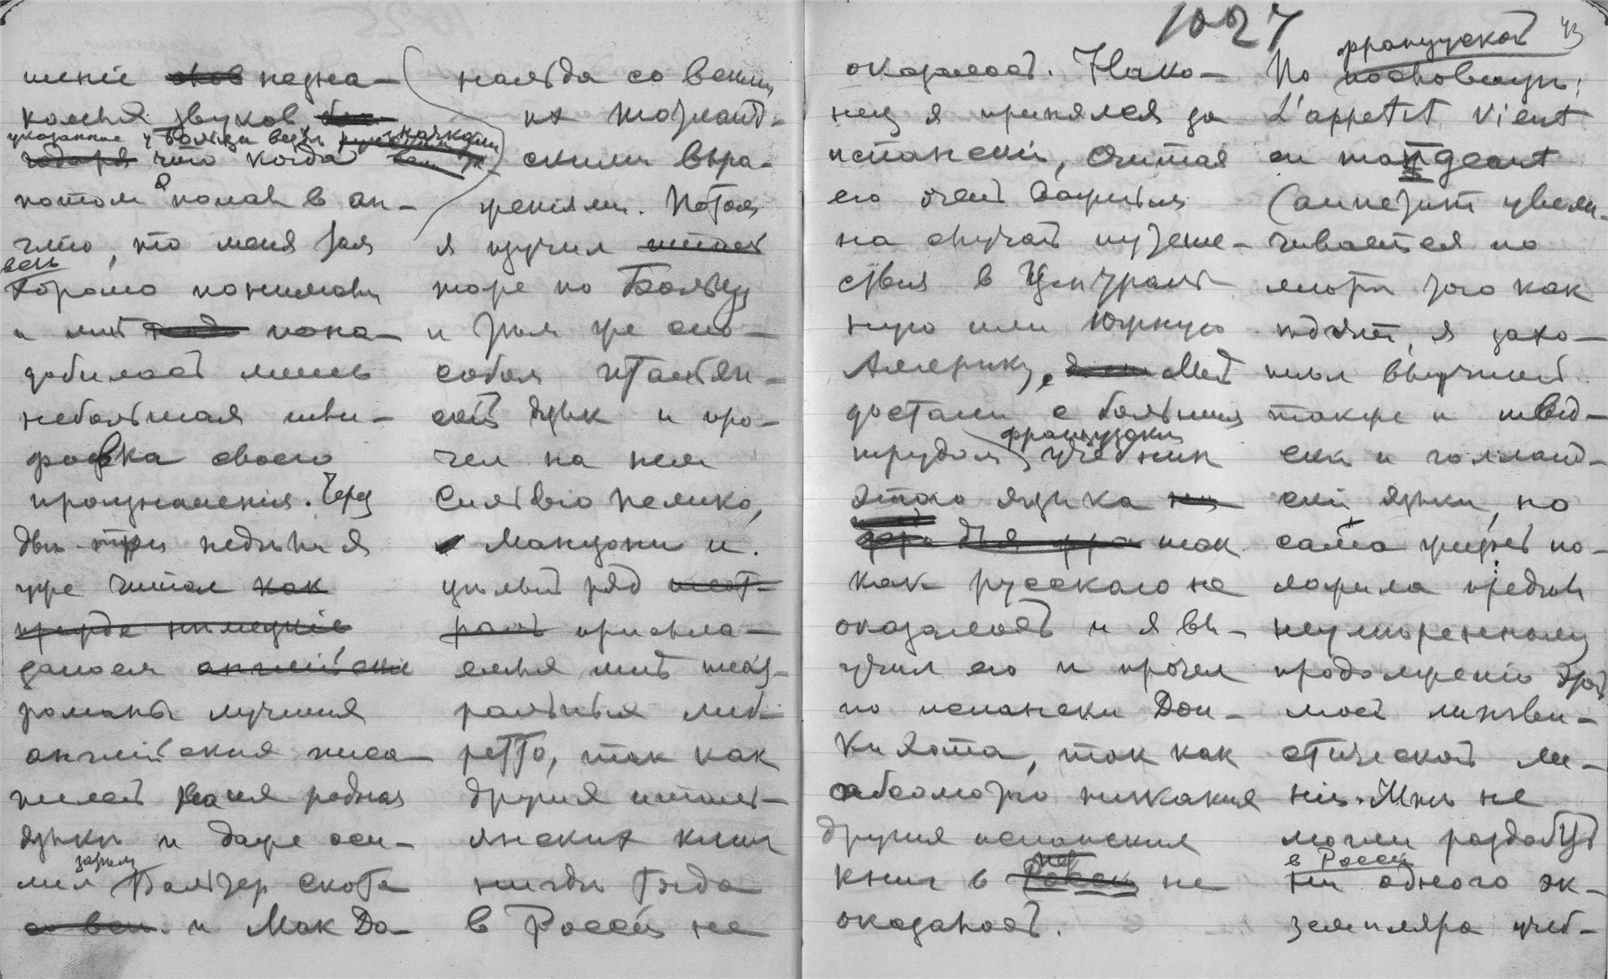 шенiе незна-
комыя звуков
указанние у Бользи всех
чего когда
потом я попал в Ан-
глию, то меня там
весь
хорошо понимали
и мнѣ пона-
добилась лишь
небольшая шли-
фовка своего
произношения. Через
двѣ-три недѣли я
уже читал как
прежде нѣмецкiе
романы лучших
английских писа-
телей на их родном
языке и даже оси-
лил затем Вальтер Скотта
и Мак До-
нальда со всеми
их шотланд-
скими выра-
жениями. Потом
я изучил
тоже по Больцу
и тем же спо-
собом итальян-
скiй язык и про-
чел на нем
Сильвiо Пелико,
Манцони и
цѣлый ряд
присыла-
емых мнѣ теат-
ральных либ-
ретто, так как
других италь-
янских книг
нигдѣ тогда
в Россiи не
1027
43
оказалось. Нако-
нец я принялся за
испанскiй, считая
его очень важным
на случай путеше-
ствия в Централь-
ную или Южную
Америку. Мнѣ
достали с большим
трудом французский учебник
этого языка
так
как русскаго не
оказалось и я вы-
учил его и прочел
по испански Дон-
Кихота, так как
абсолютно никаких
других испанских
книг в не
оказалось.
По французской
пословице:
L'appetit vient
en mangeant
(аппетит увели-
чивается по
мѣрѣ того как
ѣдят), я захо-
тел выучить
также и швед-
скiй и голланд-
скiй языки, но
сама жизнь по-
ложила предел
неумѣренному
продолжению этой
моей лингви-
стической ли-
нiи. Мнѣ не
могли раздобыть
в Россiи
ни одного эк-
земпляра учеб-